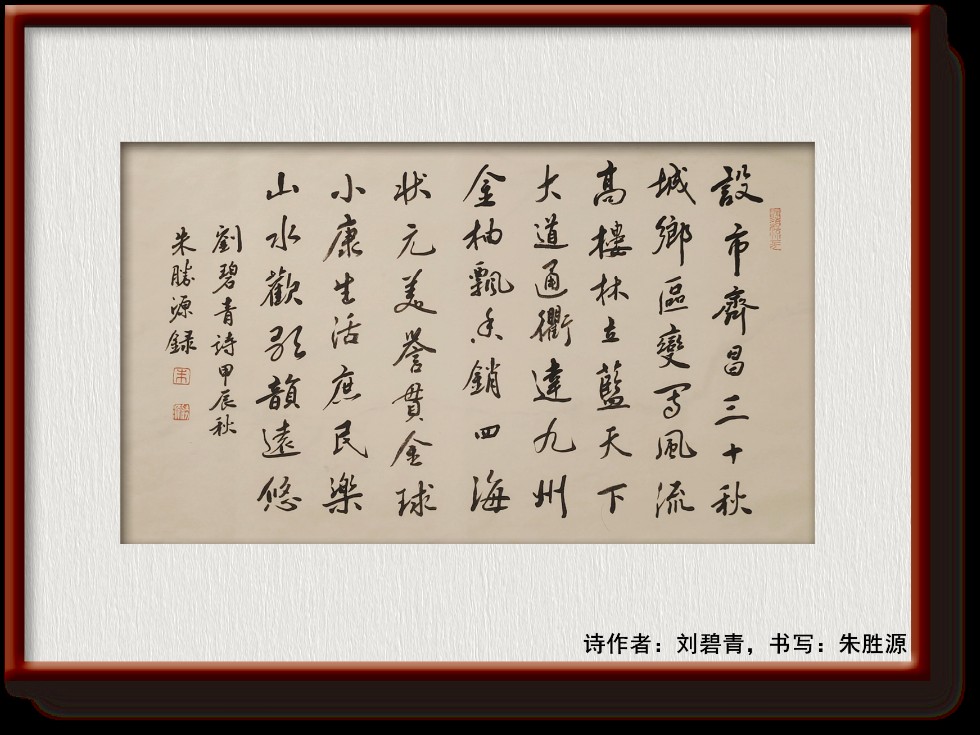 設市齊昌三十秋
城鄉區變寫風流
高樓林立藍天下
大道通衢達九州
金柚飄香銷四海
狀元美譽貫全球
小康生活庶民樂
山水歡歌韻遠悠
劉碧青詩甲辰秋
朱勝源録
诗作者：刘碧青，书写：朱胜源